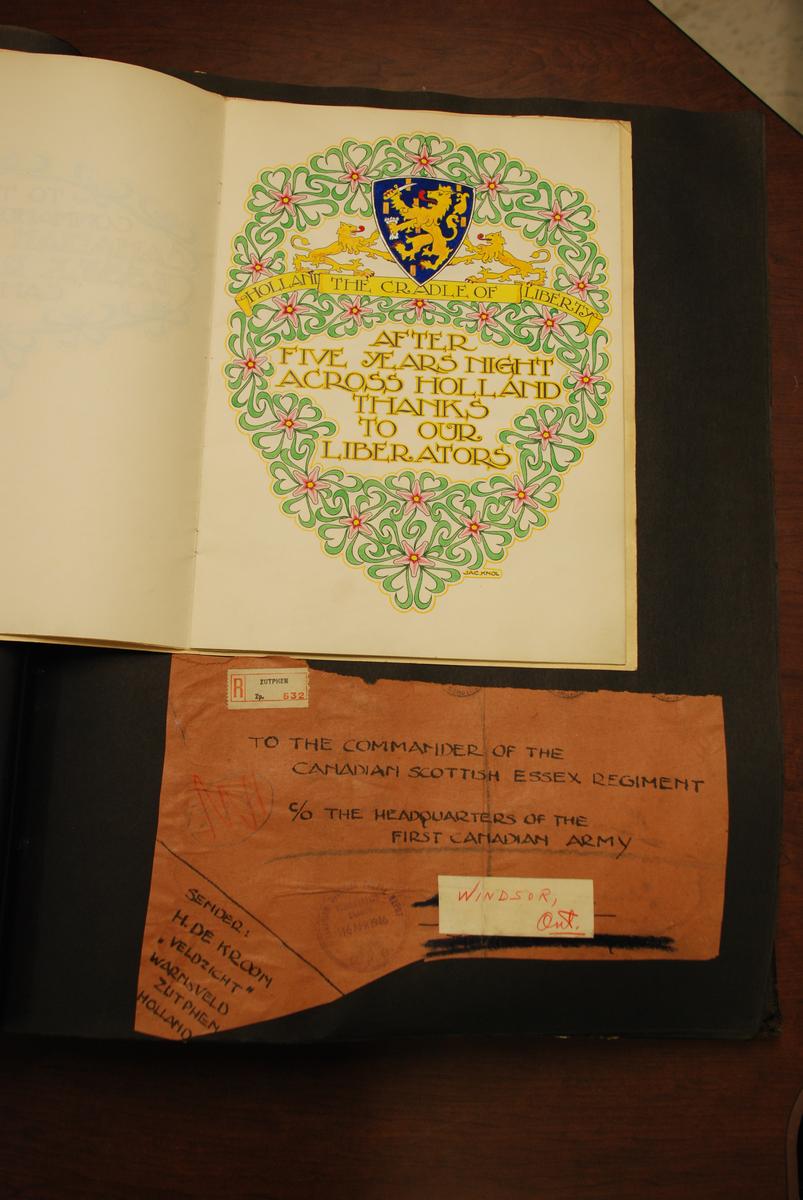 HOLLAND THE CRADLE OF LIBERTY
AFTER
FIVE YEARS NIGHT
ACROSS HOLLAND
THANKS
TO OUR
LIBERATORS
JAC.KNOL
R
ZUTPHEN
Zp. 532
TO THE COMMANDER OF THE
CANADIAN SCOTTISH ESSEX REGIMENT
C/O THE HEADQUARTERS OF THE
FIRST CANADIAN ARMY
WINDSOR,
Ont.
SENDER:
H. DE KROOM
"VELDZICHT"
WARNSVELD
ZUTPHEN
HOLLAND